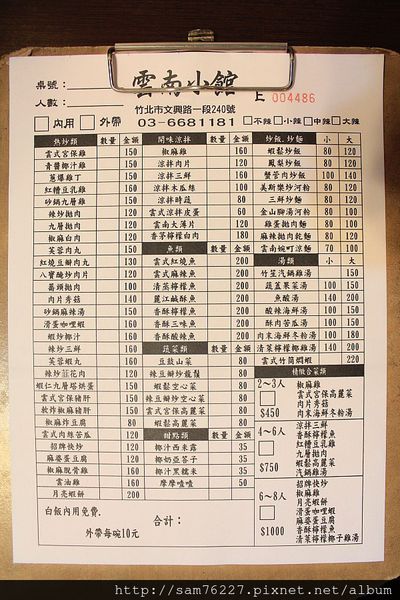 雲南小館
桌號：
人數：
竹北市文興路一段240號
E 004486
□內用 □外帶 03-6681181 □不辣 □小辣 □中辣 □大辣
熱炒類 數量 金額
雲式宮保雞 150
青醬椰汁雞 150
蔥爆雞丁 150
紅糟豆乳雞 150
砂鍋九層雞 150
辣炒拋肉 120
九層拋肉 120
椒麻白肉 120
芙蓉肉丸 150
紅燒豆瓣肉丸 130
八寶醃炒肉片 120
蕃頭拋肉 100
肉片秀菇 140
砂鍋麻辣湯 150
滑蛋咖哩蝦 150
蝦炒椰汁 150
辣炒三鮮 160
芙蓉蝦丸 160
辣炒韭花肉 120
蝦仁九層塔烘蛋 150
雲式宮保豬肝 150
軟炸椒麻豬肝 150
椒麻炸豆腐 80
雲式肉絲苦瓜 120
招牌快炒 120
麻婆蛋豆腐 120
椒麻脫骨雞 160
雲油雞 160
月亮蝦餅 200
開味涼拌 數量 金額
椒麻雞 160
涼拌肉片 120
涼拌三鮮 160
涼拌木瓜絲 100
涼拌時蔬 80
雲式涼拌皮蛋 60
雲南大薄片 120
香茅檸檬白肉 180
魚類 數量 金額
雲式紅燒魚 200
雲式麻辣魚 200
清蒸檸檬魚 200
麗江鹹酥魚 200
香酥檸檬魚 200
香酥三味魚 200
香酥酸辣魚 200
蔬菜類 數量 金額
豆鼓山菜 80
辣豆瓣炒龍鬚 80
蝦鬆空心菜 80
辣豆瓣炒空心菜 80
雲式宮保高麗菜 80
蝦鬆高麗菜 80
甜點類 數量 金額
椰汁西米露 35
椰奶亞答子 35
椰汁黑糯米 35
摩摩喳喳 50
炒飯.炒麵 小 大
蝦鬆炒飯 80 120
鳳梨炒飯 80 120
蟹管肉炒飯 100 140
美斯樂炒河粉 80 120
三鮮炒麵 80 120
金山腳湯河粉 80 120
雞蛋拋肉麵 80 100
麻辣拋肉乾麵 80 120
雲南碗町涼麵 70 100
湯類 小 大
竹笙汽鍋雞湯 150
蔬蓋果菜湯 100 150
魚酸湯 140 200
酸辣海鮮湯 100 150
酥肉苦瓜湯 100 150
肉末海鮮冬粉湯 100 180
清蒸檸檬椰雞湯 140 200
雲式竹筒燜蝦 220
精緻合菜類
2～3人
$450
椒麻雞
雲式宮保高麗菜
肉片秀菇
肉末海鮮冬粉湯
4～6人
$750
涼拌三鮮
香酥檸檬魚
紅糟豆乳雞
九層拋肉
蝦鬆高麗菜
汽鍋雞湯
6～8人
$1000
招牌快炒
椒麻雞
月亮蝦餅
滑蛋咖哩蝦
麻婆蛋豆腐
香酥檸檬魚
清蒸檸檬椰子雞湯
白飯內用免費.
外帶每碗10元
合計：
http://sam76227.pixnet.net/album